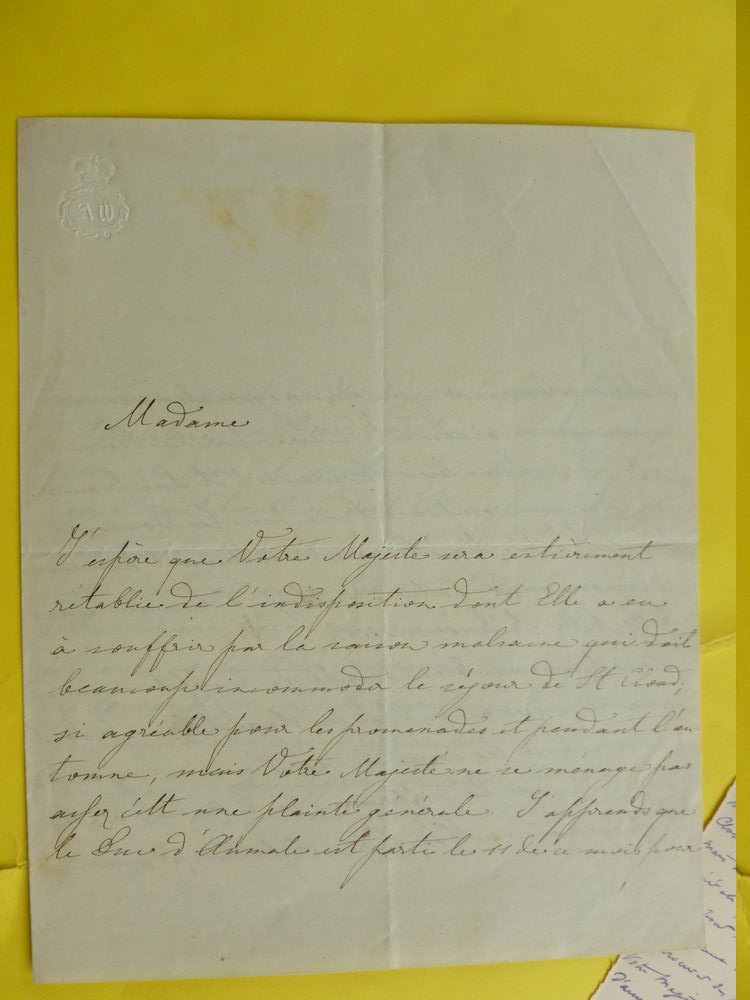 AW
Madame
J'espère que Votre Majesté sera entièrement
rétablie de l'indisposition dont Elle a eu
à souffrir par la saison malsaine qui doit
beaucoup incommoder le séjour de St Cloud,
si agréable pour les promenades et pendant l'au-
tomne, mais Votre Majesté ne se ménage pas
assez c'ett une plainte générale. J'apprends que
le Duc d'Aumale est parti le 11 de ce mois pour
Votre Maj